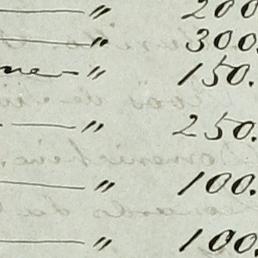 — " 200
— " 300.
ne — " 150.
— " 250.
— " 100.
— " 100.